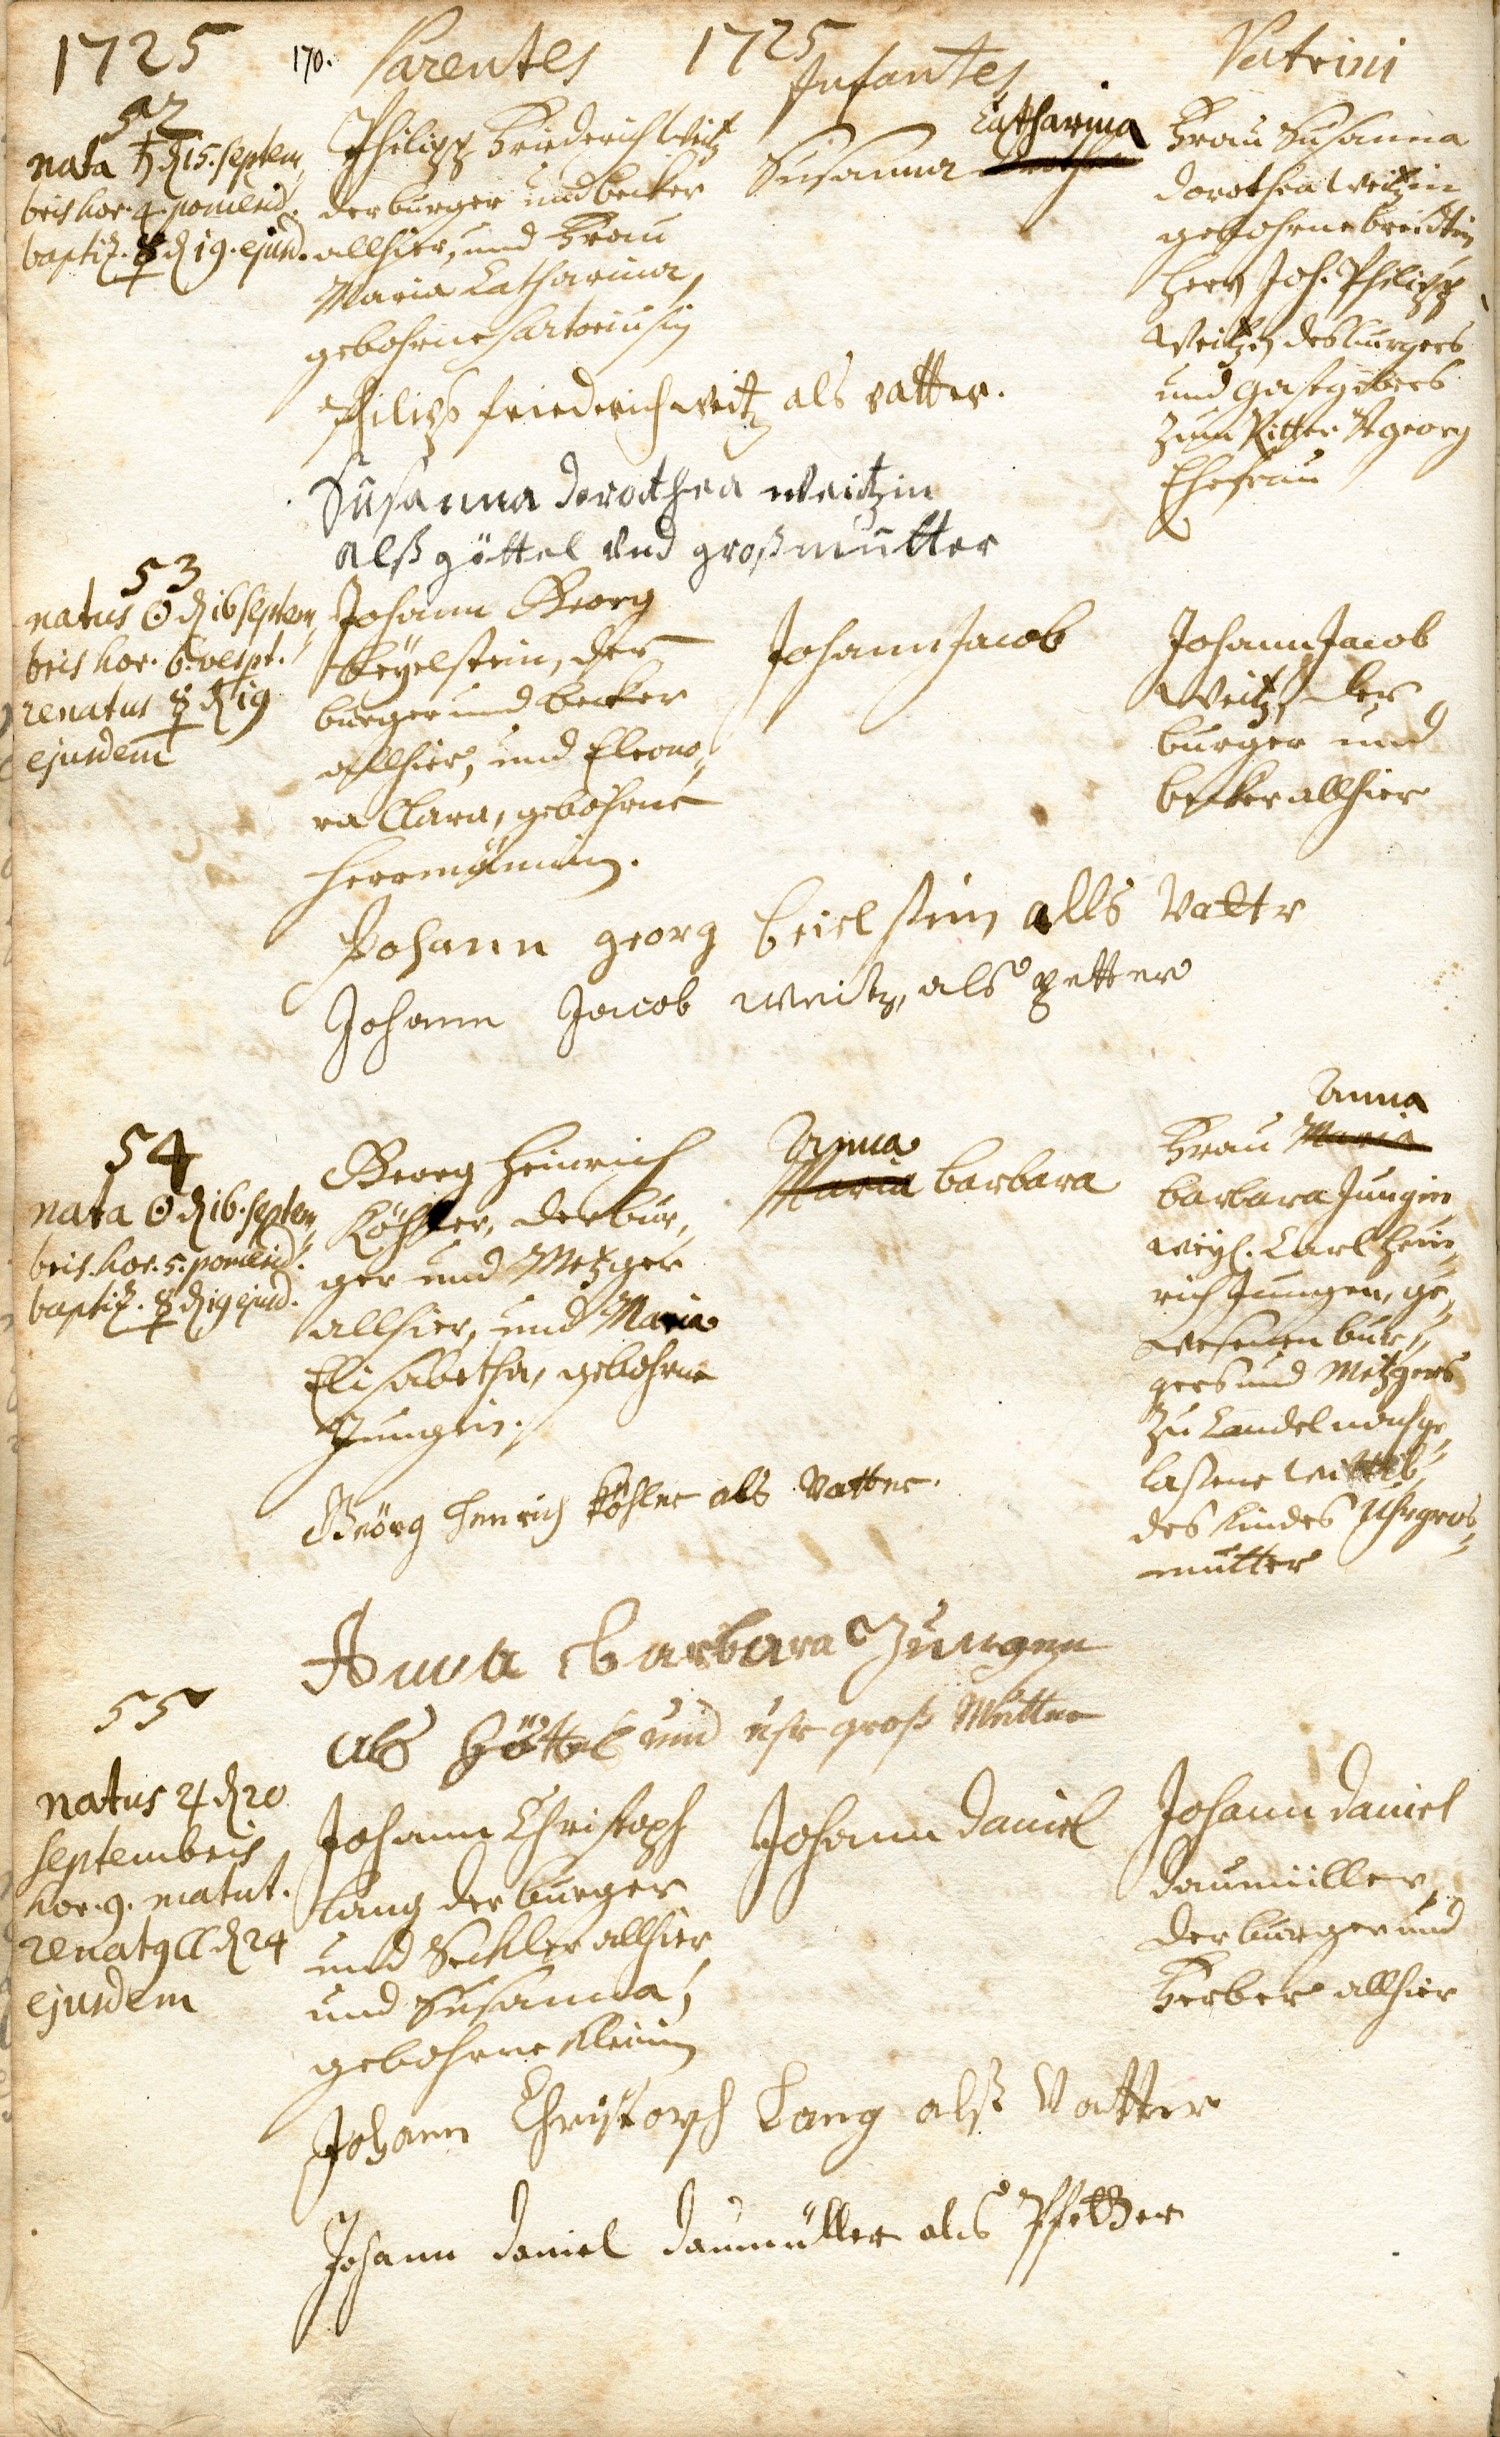 1725 170. Parentes 1725 Infantes Patrini
52
nata ♄ d 15. septem,
bris hor. 4. pomerid.
baptiz. ☿ d 19. ejusd.
Philipp Friederich Weitz
der burger und becker
allhier, und Frau
Maria Catharina,
gebohrne Sartoriusin
Catharina
Susanna Dorothea
Frau Susanna
Dorothea Weitzin
gebohrne breidtin
Herrn Joh. Philipp
Weitzen des burgers
und gastgebers
zum Ritter St georg
Ehefrau
Philips friederich weitz als vatter.
Susanna dorothea weitzin
alß göttel und großmutter
53
natus ☉ d 16 septem,
bris hor. 6. vespt.
renatus ☿ d 19
ejusdem
Johann Georg
beyelstein, der
burger und becker
allhier, und Eleono,
ra Clara, gebohrne
Herrmännin.
Johann Jacob
Johann Jacob
Weitz, der
burger und
becker allhier
Johann georg beielstein alls Vattr
Johann Jacob weitz, als petter
54
nata ☉ d 16. septem,
bris. hor. 5. pomerid.
baptiz. ☿ d 19 ejusd.
Georg Heinrich
Köhler, der bur,
ger und Metzger
allhier, und Maria
Elisabetha, gebohrne
Jungin.
Anna
Maria barbara
Anna
Frau Maria
barbara Jungin
weyl. Carl Hein,
rich Jungen, ge,
wesenen bur,
gers und Metzgers
zu Landel nachge,
laßene Wittib,
des Kindes Uhrgros,
mutter
Geörg Henrich Köhler als Vatter.
Anna barbara Jungen
als Göttel und uhr groß Mutter
55
natus ♃ d 20
septembris
hor. 9. matut.
renatq ☾ d 24
ejusdem
Johann Christoph
Lang der burger
und Seckler allhier,
und Susanna,
gebohrne Kleinin
Johann Daniel
Johann Daniel
Daumüller,
der burger und
Ferber allhier
Johann Christoph Lang alß Vatter
Johann daniel daumüller als Pfetter